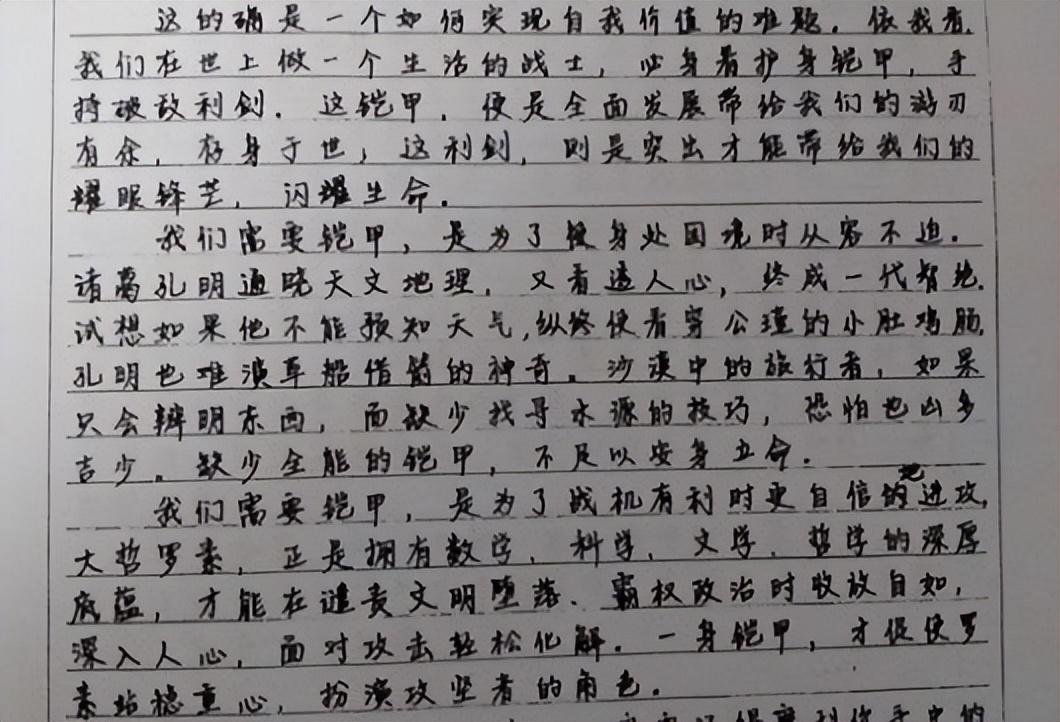 这的确是一个如何实现自我价值的难题。依我看,
我们在世上做一个生活的战士，必身着护身铠甲，手
持破敌利剑。这铠甲，便是全面发展带给我们的游刃
有余，存身于世，这利剑，则是突出才能带给我们的
耀眼锋芒，闪耀生命。
我们需要铠甲，是为了使身处困境时从容不迫。
诸葛孔明通晓天文地理，又看透人心，终成一代智绝.
试想如果他不能预知天气,纵终使看穿公瑾的小肚鸡肠,
孔明也难演草船借箭的神奇。沙漠中的旅行者，如果
只会辨明东西，而缺少找寻水源的技巧，恐怕也凶多
吉少。缺少全能的铠甲，不足以安身立命。
我们需要铠甲，是为了战机有利时更自信地进攻,
大哲罗素，正是拥有数学、科学、文学、哲学的深厚
底蕴，才能在谴责文明堕落、霸权政治时收放自如，
深入人心，面对攻击轻松化解。一身铠甲，才促使罗
素站稳重心，扮演攻坚者的角色。